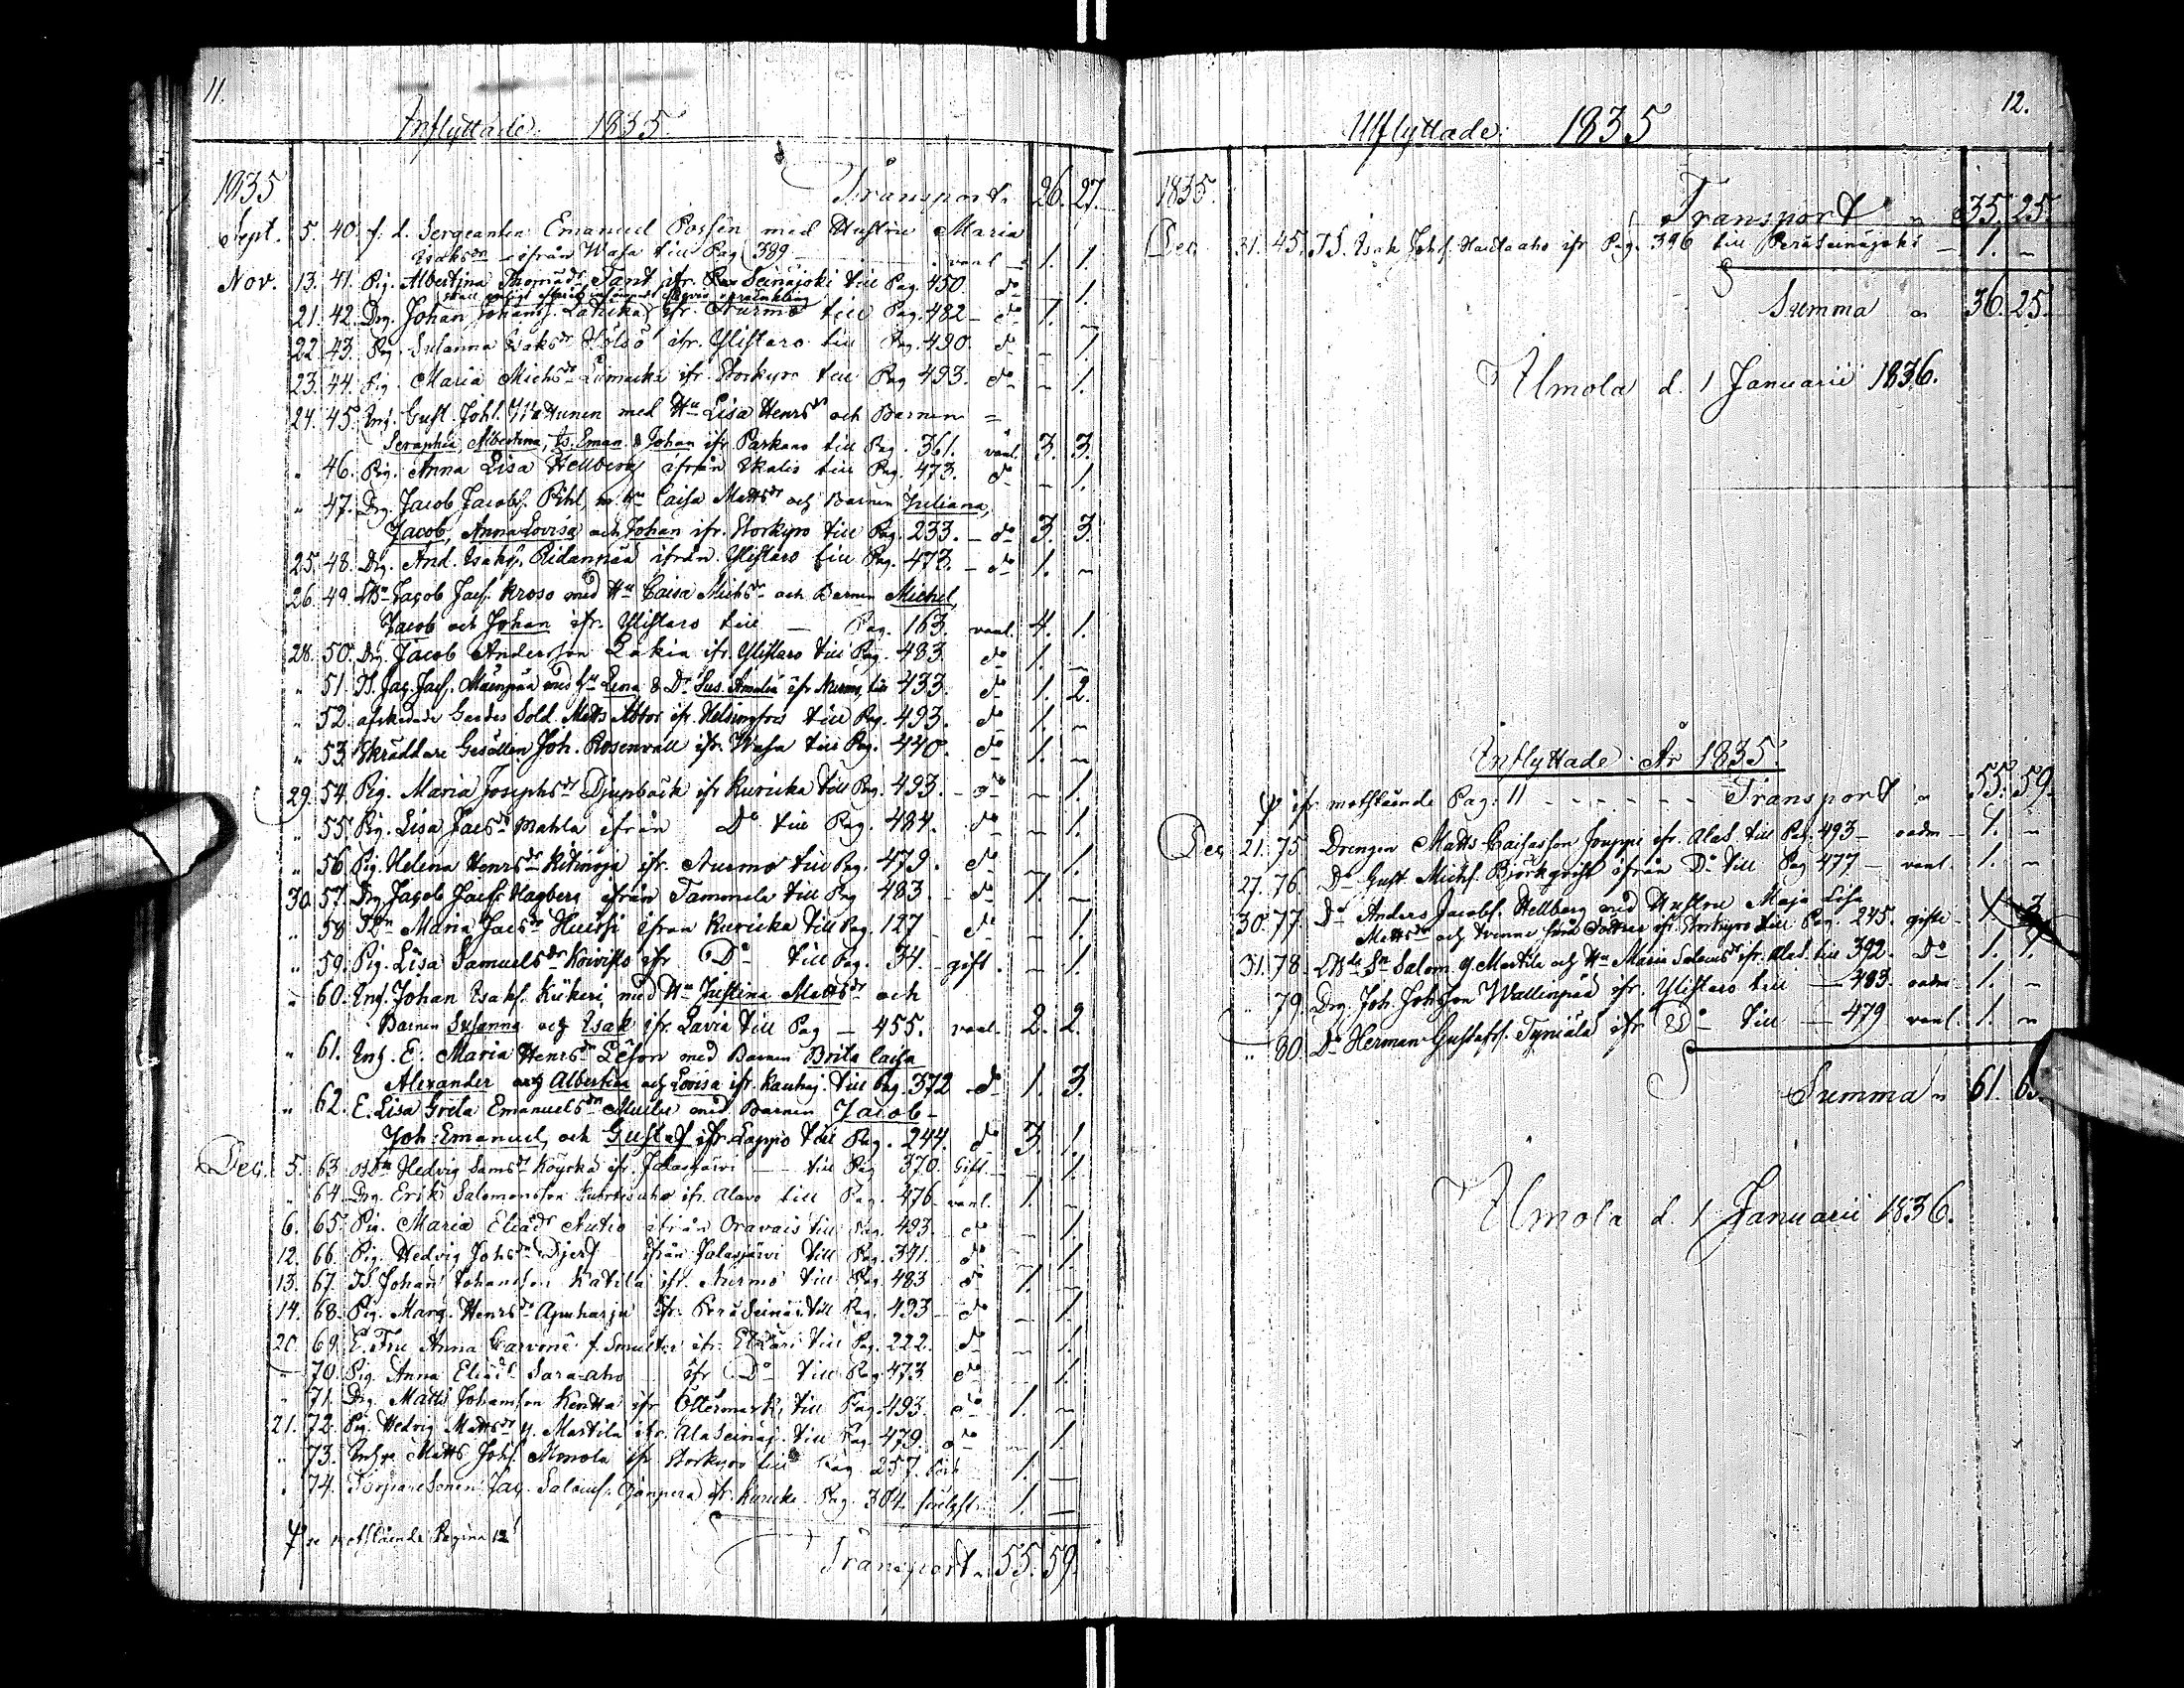 11.
Inflyttade. 1835.
1835 Transport. 26. 27.
Sept. 5. 40. f. d. Sergeanten Emanuel Possén med Hustru Maria
Isaksdr ifrån Wasa till Pag. 389 - vanl - 1. 1.
Nov. 13. 41. Pig. Albertina Thomädr Tant ifr. Per Seinäjoki till Pag. 450. do - 1.
21. 42. Drg. Johan Johanss. Latuka ifr. Nurmo till Pag. 482 - do 1. -
22. 43. Pig. Susanna Isaksdr ifr. Ylistaro till Pag. 490. do - 1
23. 44. Pig. Maria Michsdr ifr. Storkyro till Pag. 493. do - 1.
24. 45. Inh. Gust. Johs. Wattunen med Hu Lisa Henrsdr och Barnen =
Seraphia, Albertina, Is. Eman. & Johan ifr. Parkano till Pag. 361. vanl. 3. 3.
" 46. Pig. Anna Lisa Hellberg ifrån Ikalis till Pag. 473. do - 1.
" 47. Drg. Jacob Jacobs. Pihl, m. Hu Caisa Mattsdr och Barnen Juliana,
Jacob, Anna Lovisa och Johan ifr. Storkyro till Pag. 233. - do 3. 3.
25. 48. Drg. And. Isaks. Ridanpää ifrån Ylistaro till Pag. 473. - do 1. -
26. 49. Jacob Jacs. Kroso med Hu Caisa Michsdr och Barnen Michel,
Jacob och Johan ifr. Ylistaro till - Pag. 163. vanl. 4. 1.
28. 50. Drg. Jacob Andersson Lakia ifr. Ylistaro till Pag. 483. do 1. -
" 51. Jac. Jacs. Mäenpää med Hu Lena & Dr Sus. Amalia ifr Nurmo, till 433. do 1. 2.
" 52. afskedade Gardes Sold. Matts Ator ifr. Helsingfors till Pag. 493. do 1. -
" 53. Skräddare Gesällen Joh. Rosenvall ifr. Wasa till Pag. 440. do 1. -
29. 54. Pig. Maria Josephsdr Djupbäck ifr Kuricka till Pag. 493. - do - 1.
" 55. Pig. Lisa Jacsdr Mahla ifrån Do till Pag. 484. do - 1.
" 56. Pig. Helena Henrsdr Kitinoja ifr. Nurmo till Pag. 479. do - 1.
30. 57. Drg. Jacob Jacs. Hagberg ifrån Tammela till Pag 483. - do 1. -
" 58. Maria Jacsdr ifrån Kuricka till Pag. 127 - do - 1.
" 59. Pig. Lisa Samuelsdr Koivisto ifr Do till Pag. 34. - gift. - 1.
" 60. Inh. Johan Isaks. Kükeri med Hu Justina Mattsdr och
Barnen Susanna och Isak ifr. Lavia till Pag - 455. vanl. 2. 2.
" 61. Inh. E. Maria Henrsdr med Barnen Brita Caisa
Alexander och Albertina och Lovisa ifr. Kauhaj. till Pag. 372 do 1. 3.
" 62. E. Lisa Greta Emanuelsdr med Barnen Jacob -
Joh. Emanuel, och Gustaf ifr. Lappo till Pag. 244. do 3. 1.
Dec. 5. 63. Hedvig Samsdr Köykkä ifr. Jalasjärvi - till Pag 370. Gift. - 1.
" 64. Drg. Erik Salomonsson ifr. Alavo till Pag. 476. vanl. 1. -
6. 65. Pig. Maria Eliædr Autio ifrån Oravais till Pag. 493. do - 1.
12. 66. Pig. Hedvig Johsdr Djerf ifrån Jalasjärvi till Pag. 371. do - 1.
13. 67. Johan Johansson Katila ifr. Nurmo till Pag. 483 do 1. -
14. 68. Pig. Marg. Henrsdr ifr. Peräseinäj. till Pag. 493 - do - 1.
20. 69. E. Fru Anna ifr. Etseri till Pag. 222. do - 1.
" 70. Pig. Anna Eliædr Sara-aho ifr Do till Pag. 473 do - 1.
" 71. Drg. Matts Johansson Kentta ifr Öttermark, till Pag. 493. do 1. -
21. 72. Pig. Hedvig Mattsdr Y. Martila ifr. Alaseinäj. till Pag. 479. do - 1.
" 73. Matts Johs. Ilmola ifr Storkyro till Pag 257. 1. -
" 74. Torparesonen Jac. Saloms. ifr. Kuricka. Pag. 304. 1. -
se motstående Pagina 12
Transport 55. 59.
12.
Utflyttade. 1835
1835. Transport " 35. 25.
Dec. 31. 45. Isak Johs. Hautaaho ifr Pag. 396 till Peräseinäjoki - 1. -
Summa " 36. 25.
Ilmola d. 1 Januarii 1836.
Inflyttade År 1835.
ifr. motstående Pag. 11 - - - - - - Transport " 55. 59.
Dec. 21. 75. Drengen Matts Caisasson Jouppi ifr. Alas. till Pag. 493 - 1. -
27. 76. Do Gust. Michs. Björkqvist ifrån Do till Pag 477 - vanl. 1. -
30. 77. Do Anders Jacobs. Hellberg med Hustru Maja Lisa
Mattsdr och tvenne små Döttrar ifr. Storkyro till Pag. 245. gifte 1. 3
31. 78. Salom. Y. Martila och Hu Maria Salomsdr ifr. Alas. till 392. Do 1. 1.
" 79. Drg. Joh. Johsson Wallinpää ifr. Ylistaro till - 483. 1. -
" 80. Do Herman Gustafs. Tyniälä ifr Do - till - 479 vanl. 1. -
Summa " 61. 63.
Ilmola d. 1 Januarii 1836.